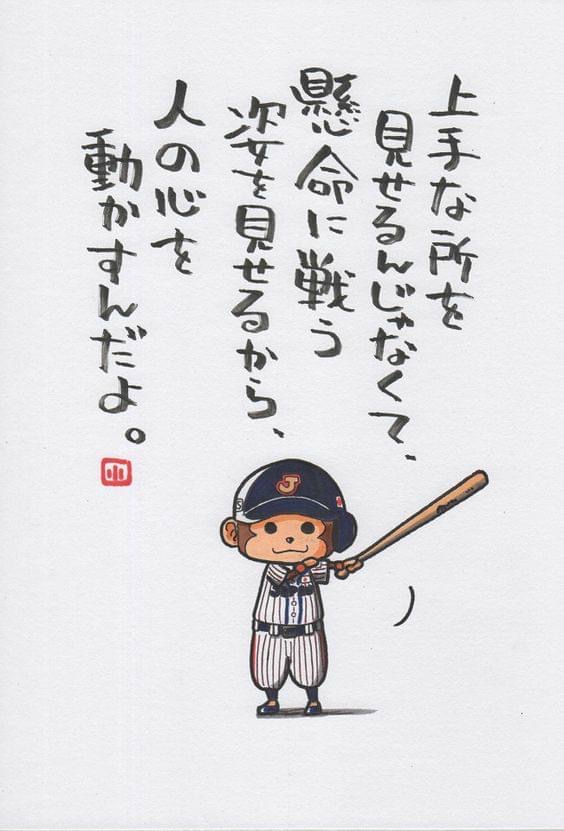 上手な所を
見せるんじゃなくて、
懸命に戦う
姿を見せるから、
人の心を
動かすんだよ。
小
J